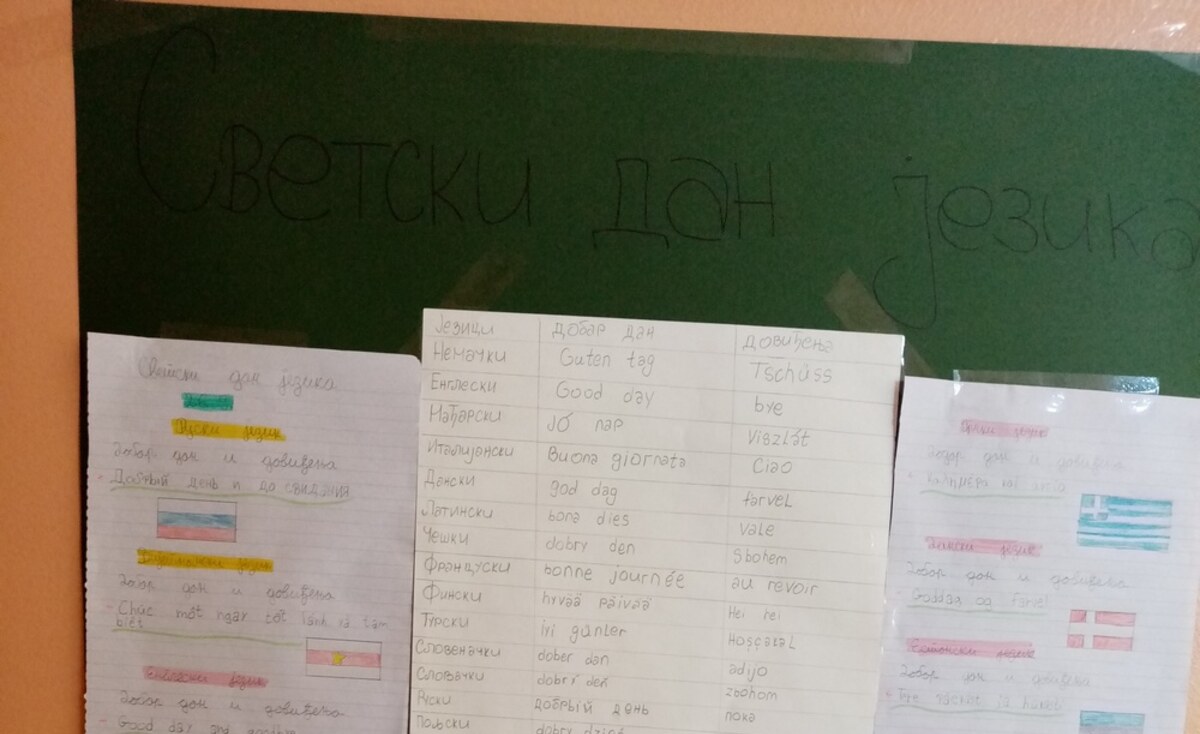 Светски дан језика
Светски дан језика
Руски језик
добар дан и довиђења
Добрый день и до свидания
језик
добар дан и довиђења
Chúc một ngày tốt lành và tạm
biệt
Енглески језик
добар дан и довиђења
Good day and
Језици добар дан довиђења
Немачки Guten tag Tschüss
Енглески Good day bye
Мађарски Jó nap Viszlát
Италијански Buona giornata Ciao
Дански god dag farvel
Латински bona dies vale
Чешки dobry den Sbohem
Француски bonne journée au revoir
Фински hyvää päivää Hei hei
Турски iyi günler Hoşçakal
Словеначки dober dan adijo
Словачки dobrí deň zbohom
Руски добрый день пока
Пољски dobry
Грчки језик
добар дан и довиђења
και
Дански језик
добар дан и довиђења
Goddag og farvel
Естонски језик
добар дан и довиђења
ja